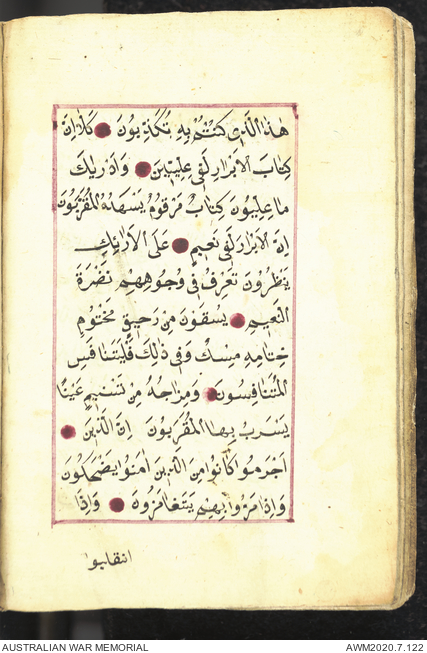 هذا الذي كنتم به تكذبون كلا ان
كتاب الابرار لفي عليين وما ادريك
ما عليون كتاب مرقوم يشهده المقربون
ان الابرار لفي نعيم على الارائك
ينظرون تعرف في وجوههم نضرة
النعيم يسقون من رحيق مختوم
ختامه مسك وفي ذلك فليتنافس
المتنافسون ومزاجه من تسنيم عينا
يشرب بها المقربون ان الذين
اجرموا كانوا من الذين امنوا يضحكون
واذا مروا بهم يتغامزون واذا
انقلبوا
AUSTRALIAN WAR MEMORIAL
AWM2020.7.122